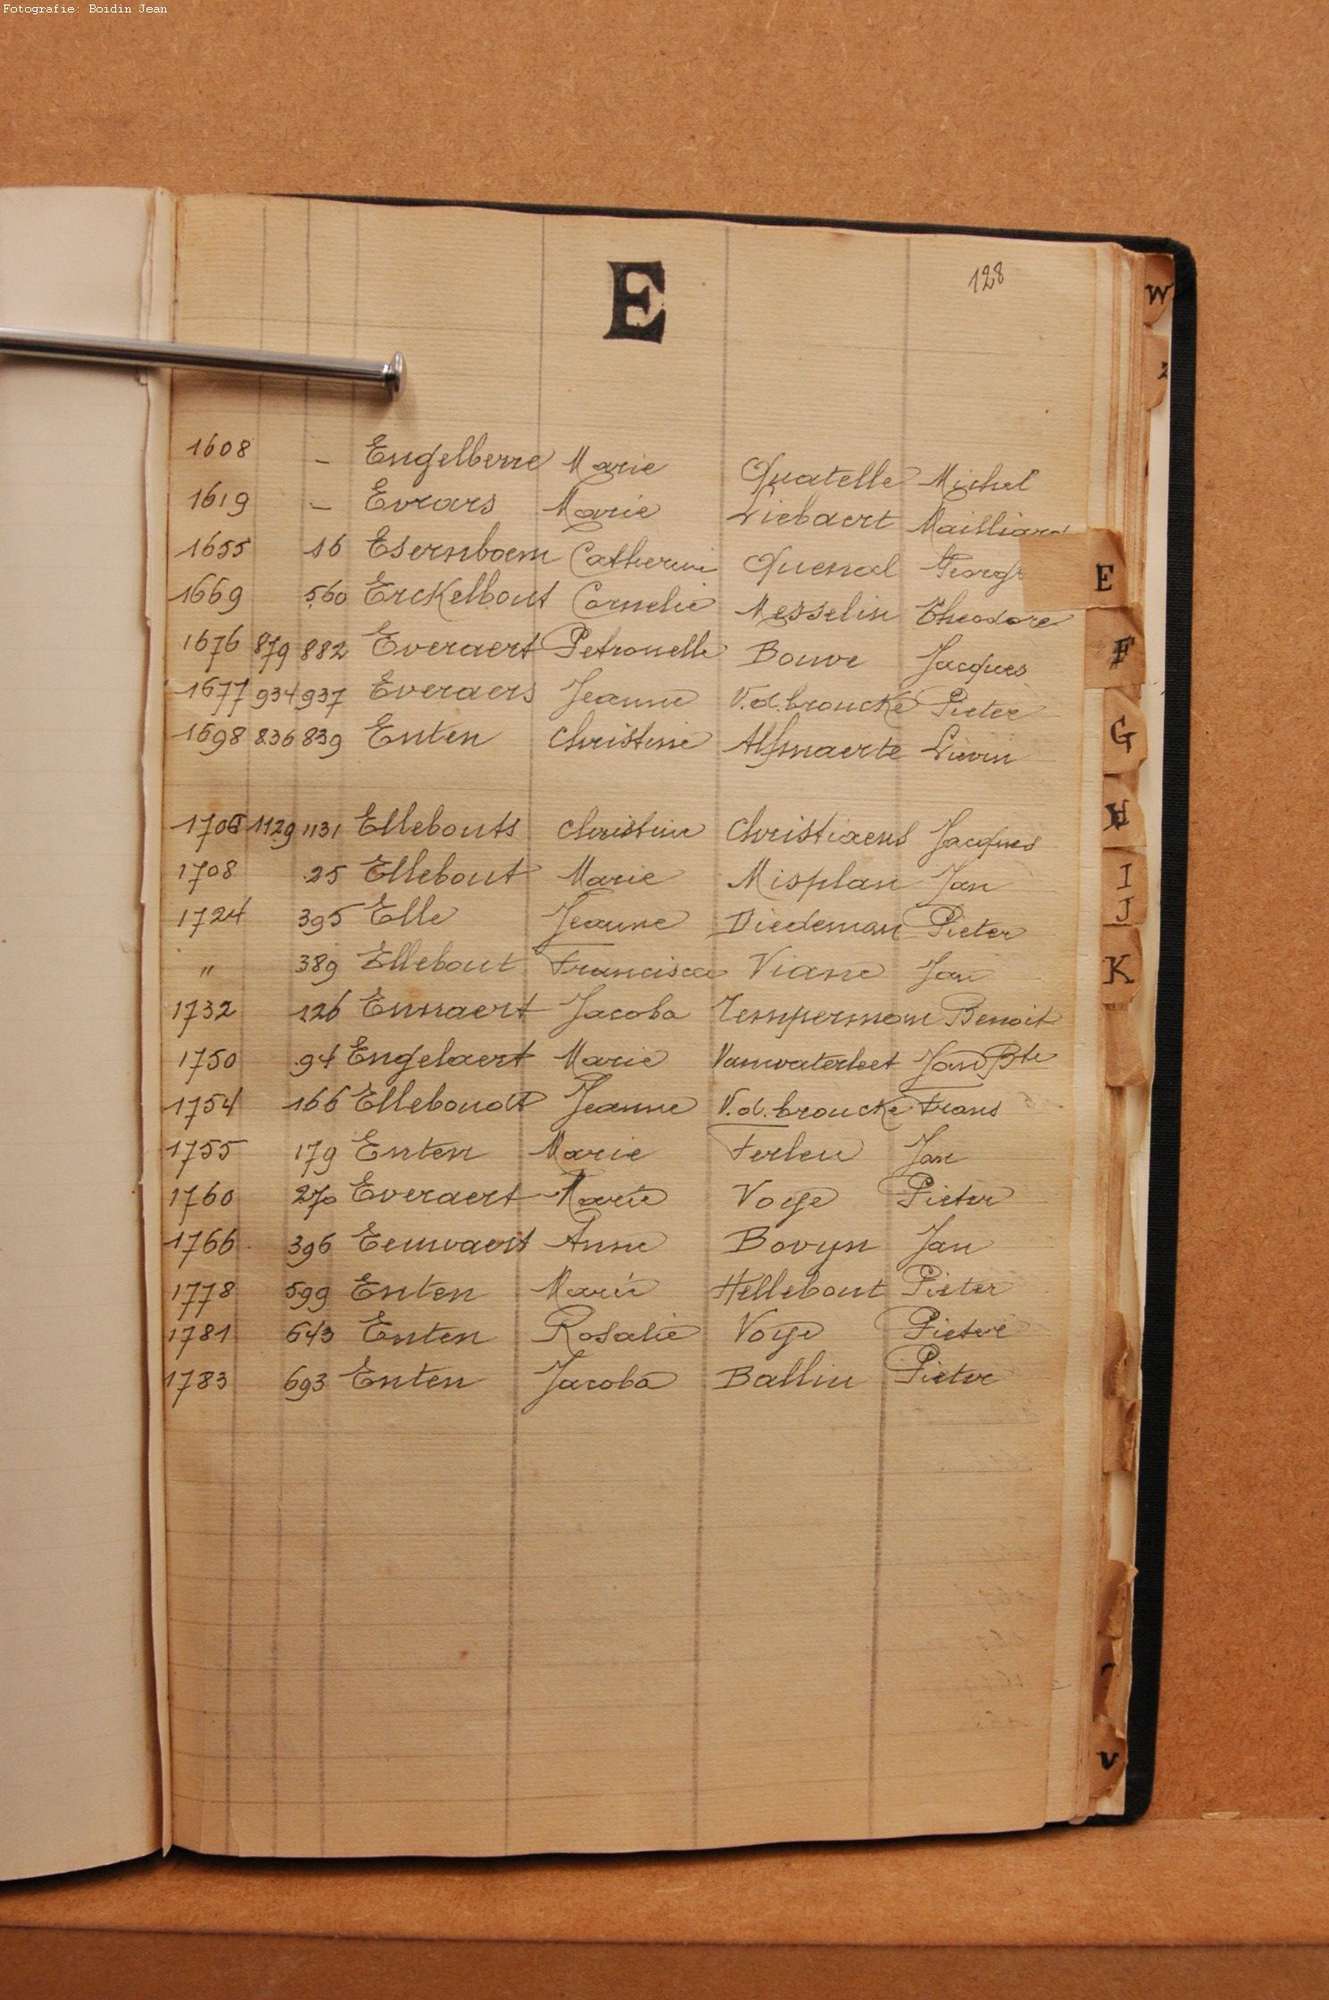 Fotografie: Boidin Jean
E
128
1608 – Engelberre Marie Quatelle Michel
1619 – Evrars Marie Liebaert Mailliard
1655 16 Esernboem Catherine Quenal George
1669 560 Erckelbout Cornelie Messelin Theodore
1676 879 882 Everaert Petronelle Bouve Jacques
1677 934 937 Everaers Jeanne V.d.broucke Pieter
1698 836 839 Enten Christine Lievin
1129 1131 Ellebouts Christine Christiaens Jacques
1708 25 Ellebout Marie Misplan Jan
1724 395 Elle Jeanne Diedeman Pieter
" 389 Ellebout Francisca Viane Jan
1732 126 Ennaert Jacoba Temperman Benoit
1750 94 Engelaert Marie Vanwaterleet Jan Bte
1754 166 Elleboudt Jeanne V.d.broucke Frans
1755 179 Enten Marie Ferleu Jan
1760 270 Everaert Marie Voye Pieter
1766 396 Eeuwaert Anne Bovyn Jan
1778 599 Enten Marie Hellebout Pieter
1781 643 Enten Rosalie Voye Pieter
1783 693 Enten Jacoba Ballin Pieter
W
Z
E
F
G
H
I
J
K
V